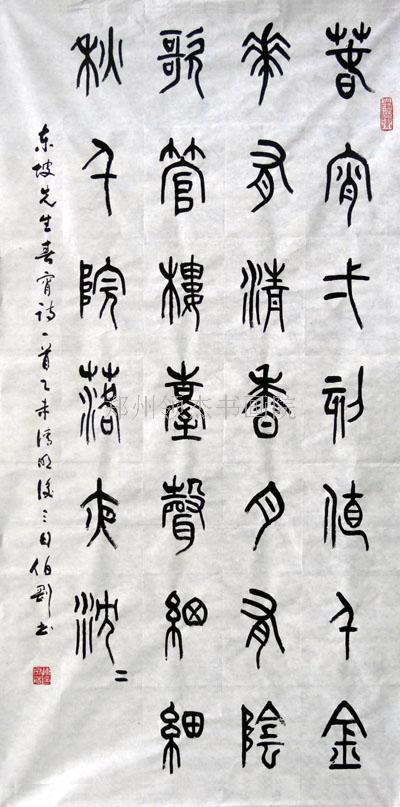 春宵弌刻值千金
花有清香月有陰
歌管樓臺聲細細
秋千院落夜沈〻
东坡先生春宵詩一首乙未清明後三日伯剛书
郑州杰书画院